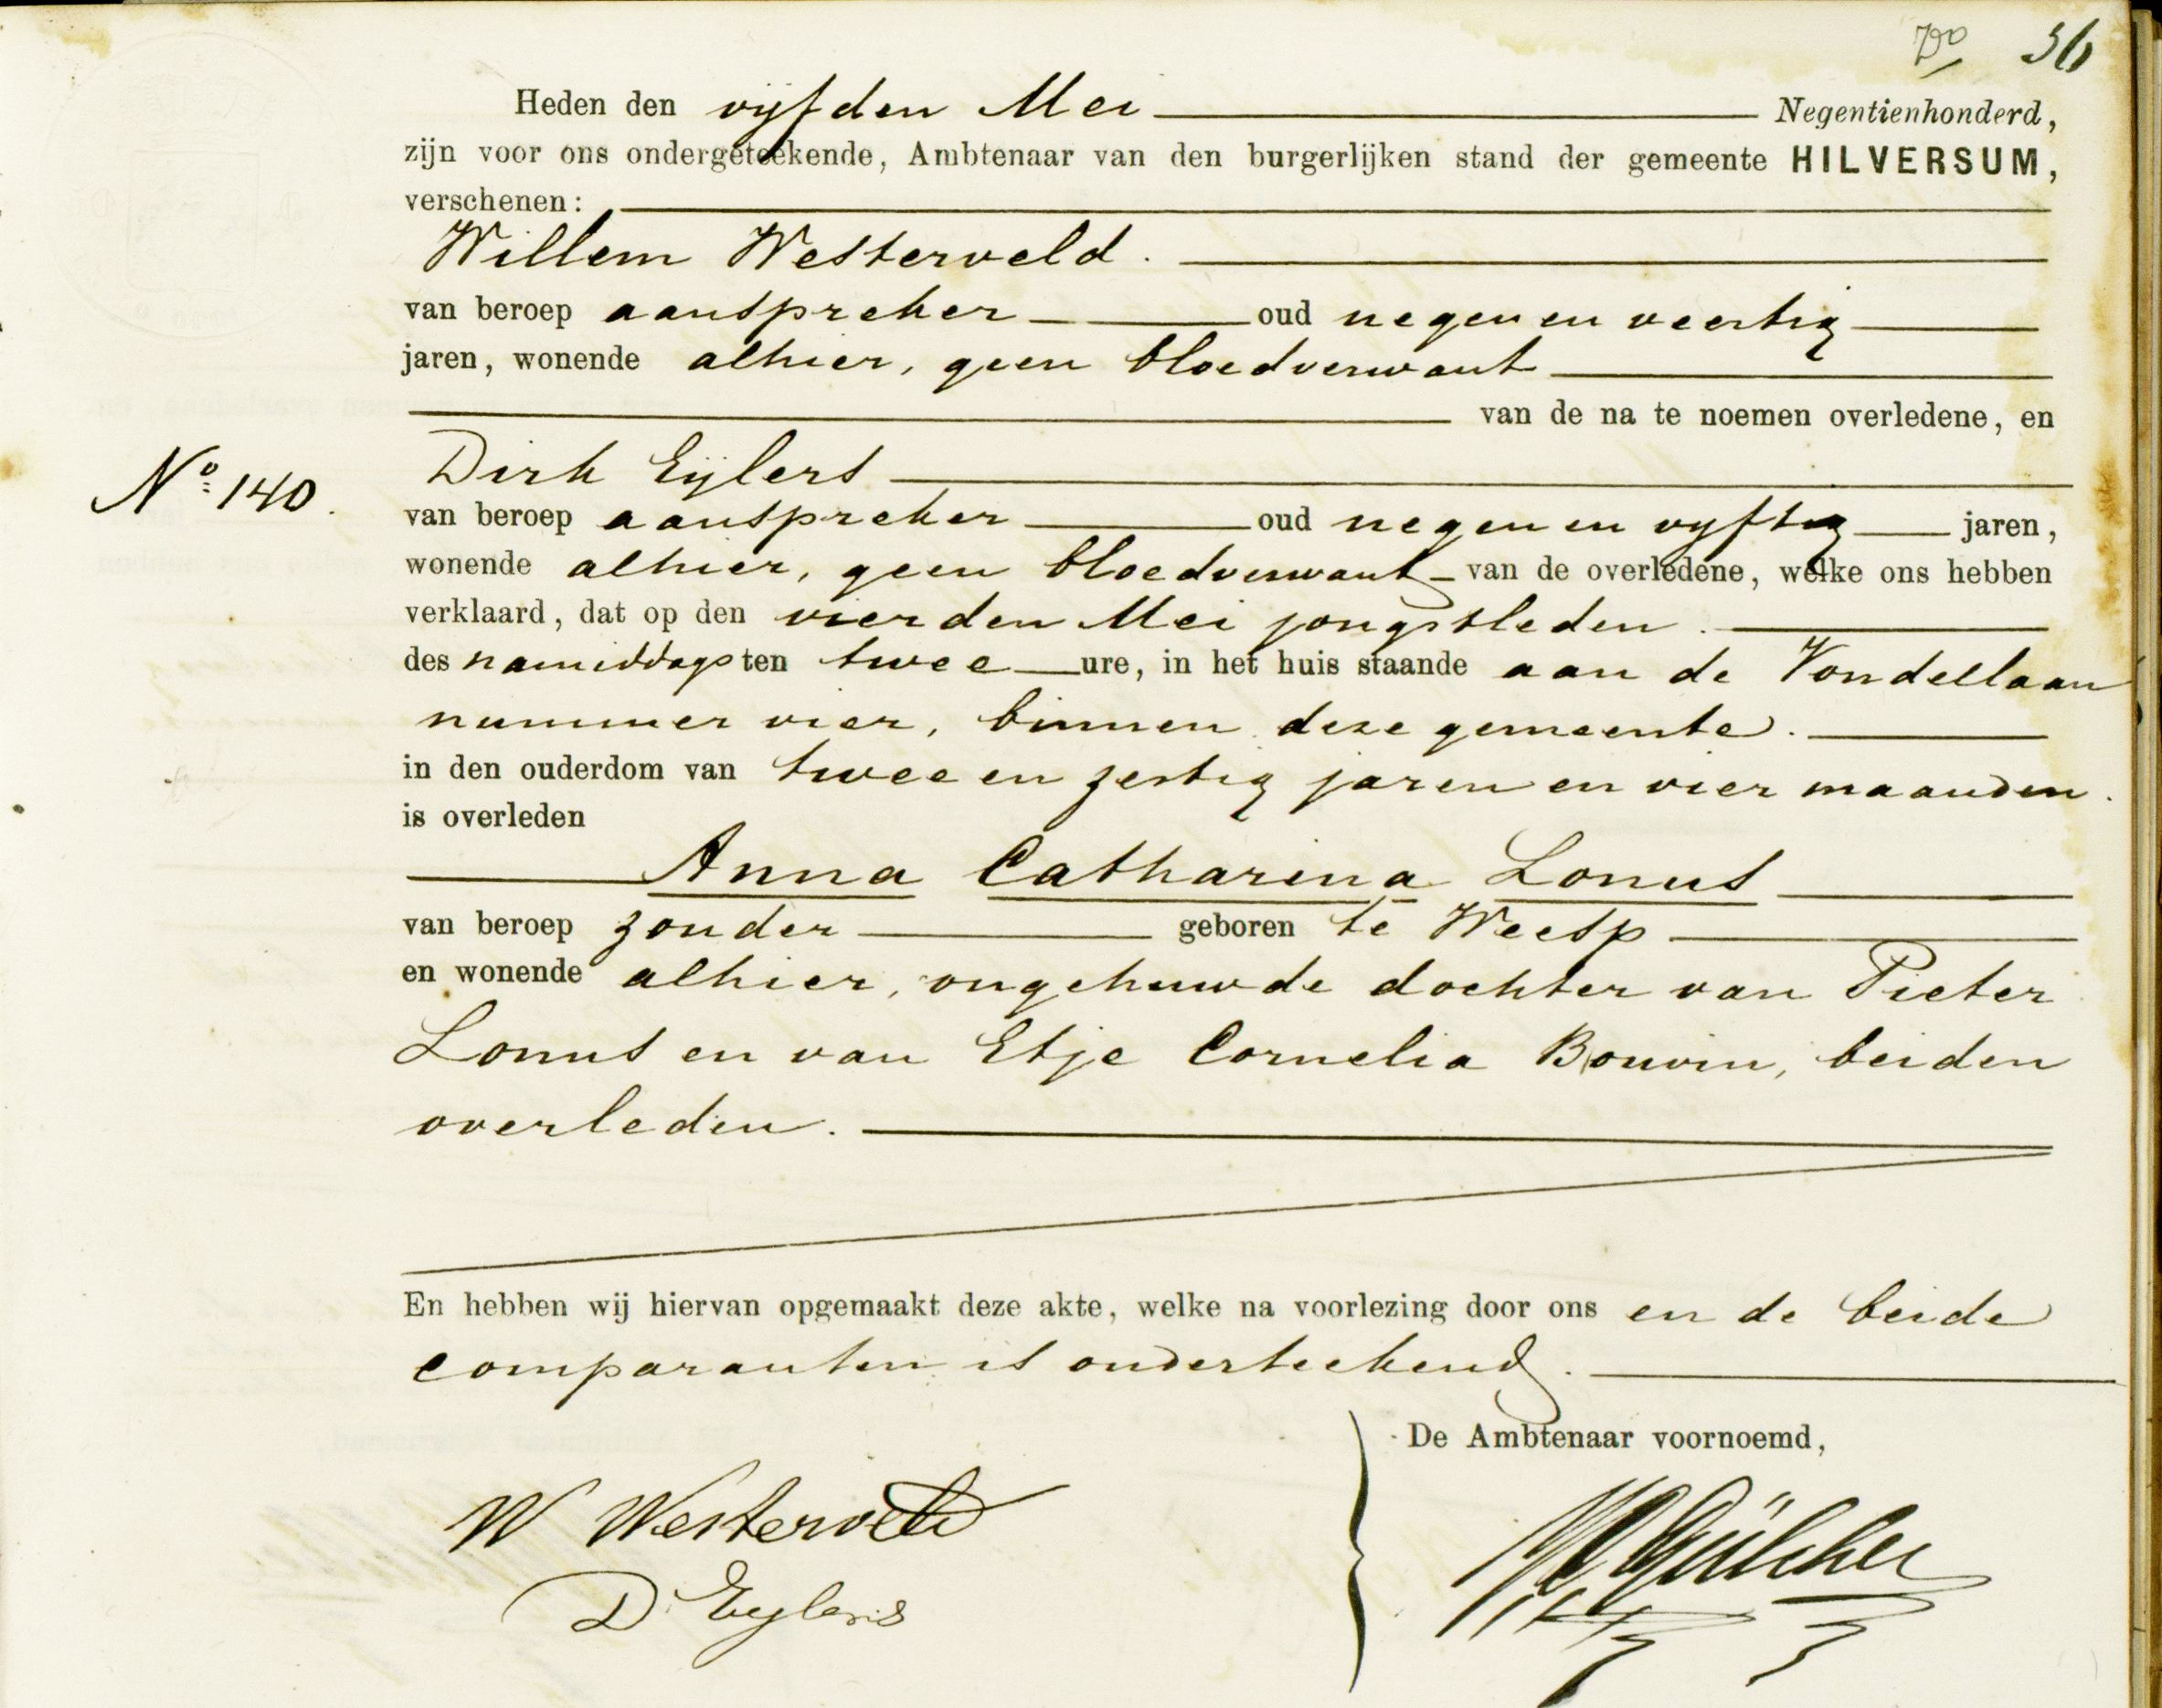 36
Heden den vijfden Mei Negentienhonderd,
zijn voor ons ondergeteekende, Ambtenaar van den burgerlijken stand der gemeente HILVERSUM,
verschenen:
Willem Westerveld.
van beroep aanspreker oud negen en veertig
jaren, wonende alhier, geen bloedverwant
van de na te noemen overledene, en
No 140.
Dirk Eijlers
van beroep aanspreker oud negen en vyftig jaren,
wonende alhier, geen bloedverwant van de overledene, welke ons hebben
verklaard, dat op den vierden Mei jongstleden.
des namiddags ten twee ure, in het huis staande aan de Vondellaan
nummer vier, binnen deze gemeente.
in den ouderdom van twee en zestig jaren en vier maanden.
is overleden
Anna Catharina Lonus
van beroep zonder geboren te Weesp
en wonende alhier, ongehuwde dochter van Pieter
Lonus en van Etje Cornelia Bouvin, beiden
overleden.
En hebben wij hiervan opgemaakt deze akte, welke na voorlezing door ons en de beide
comparanten is onderteekend.
De Ambtenaar voornoemd,
W Westerveld
D Eylers
Gülcher